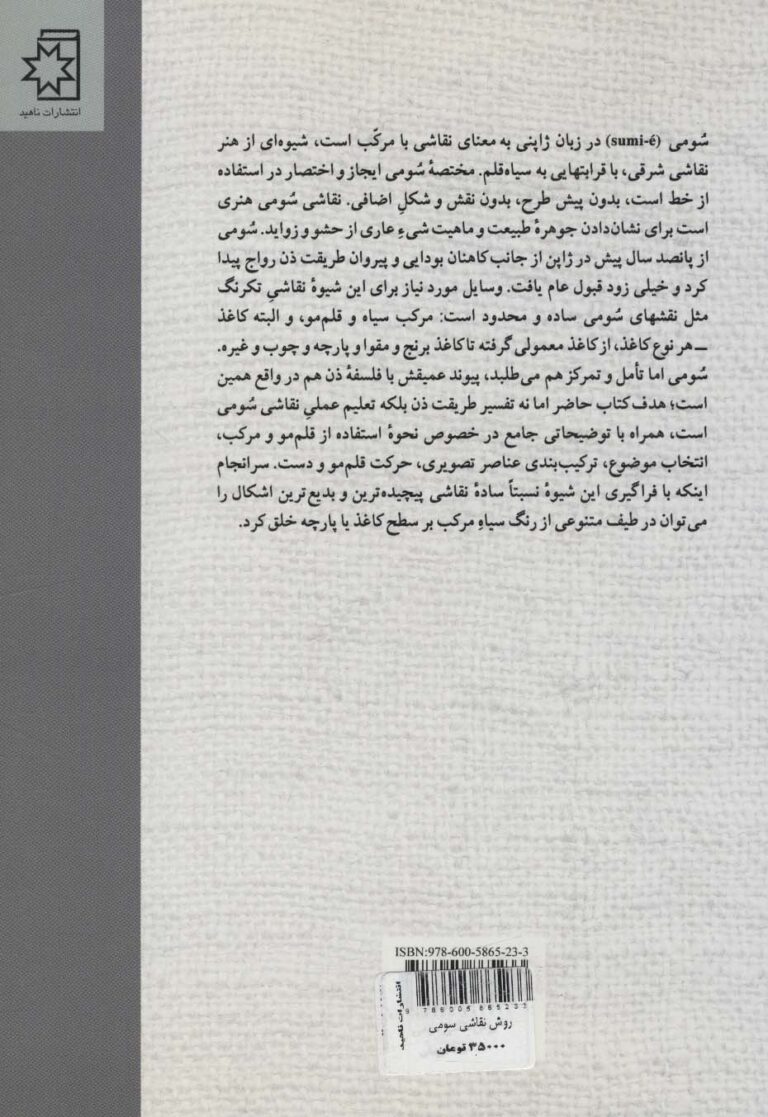 انتشارات ناهید
سُومی (sumi-é) در زبان ژاپنی به معنای نقاشی با مرکّب است، شیوه‌ای از هنر
نقاشی شرقی، با قرابتهایی به سیاه‌قلم. مختصهٔ سُومی ایجاز و اختصار در استفاده
از خط است، بدون پیش طرح، بدون نقش و شکلِ اضافی. نقاشی سُومی هنری
است برای نشان‌دادن جوهرهٔ طبیعت و ماهیت شیء عاری از حشو و زواید. سُومی
از پانصد سال پیش در ژاپن از جانب کاهنان بودایی و پیروان طریقت ذن رواج پیدا
کرد و خیلی زود قبول عام یافت. وسایل مورد نیاز برای این شیوهٔ نقاشیِ تکرنگ
مثل نقشهای سُومی ساده و محدود است: مرکب سیاه و قلم‌مو، و البته کاغذ
ــ هر نوع کاغذ، از کاغذ معمولی گرفته تا کاغذ برنج و مقوا و پارچه و چوب و غیره.
سُومی اما تأمل و تمرکز هم می‌طلبد، پیوند عمیقش با فلسفهٔ ذن هم در واقع همین
است؛ هدف کتاب حاضر اما نه تفسیر طریقت ذن بلکه تعلیم عملیِ نقاشی سُومی
است، همراه با توضیحاتی جامع در خصوص نحوهٔ استفاده از قلم‌مو و مرکب،
انتخاب موضوع، ترکیب‌بندی عناصر تصویری، حرکت قلم‌مو و دست. سرانجام
اینکه با فراگیری این شیوهٔ نسبتاً سادهٔ نقاشی پیچیده‌ترین و بدیع‌ترین اشکال را
می‌توان در طیف متنوعی از رنگ سیاهِ مرکب بر سطح کاغذ یا پارچه خلق کرد.
ISBN:978-600-5865-23-3
انتشارات ناهید
9 786005 865233
روش نقاشی سومی
۳۵۰۰۰ تومان